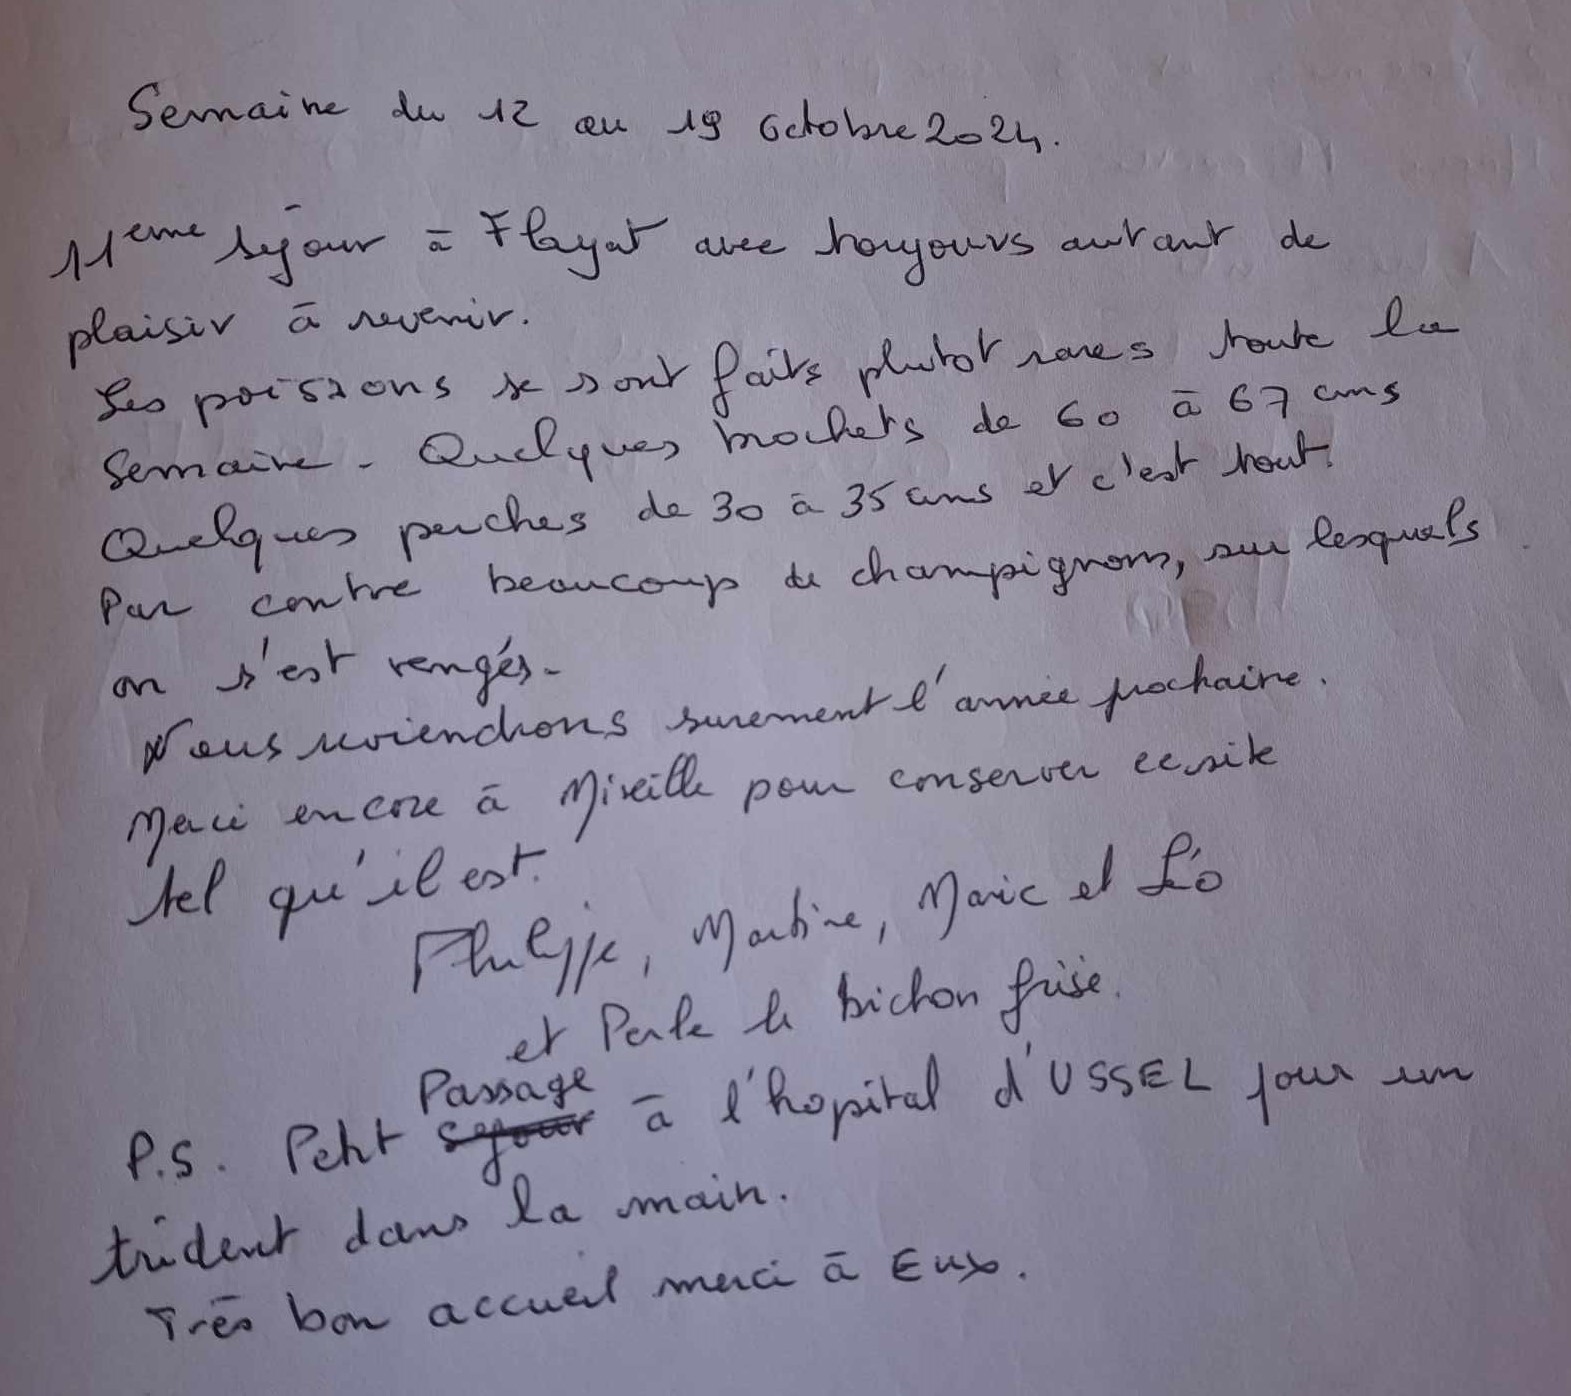 Semaine du 12 au 19 octobre 2024.
11eme séjour à Flayat avec toujours autant de
plaisir à revenir.
Les poissons se sont faits plutot rares toute la
semaine. Quelques brochets de 60 à 67 cms
Quelques perches de 30 à 35 cms et c'est tout.
Par contre beaucoup de champignons, sur lesquels
on s'est vengés.
Nous reviendrons surement l'année prochaine.
Merci encore à Mireille pour conserver ce site
tel qu'il est.
Philippe, Martine, Marie et Léo
et Perle le bichon frisé.
P.S. Petit Passage à l'hopital d'USSEL pour un
trident dans la main.
Très bon accueil merci à Eux.